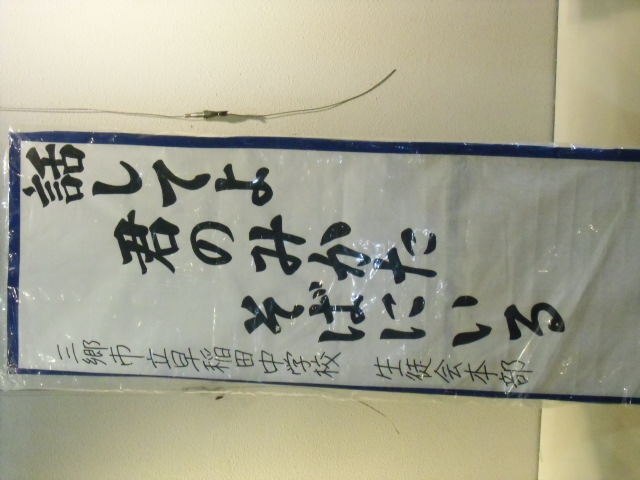 話してよ
君のみかた
そばにいる
三郷市立早稲田中学校 生徒会本部